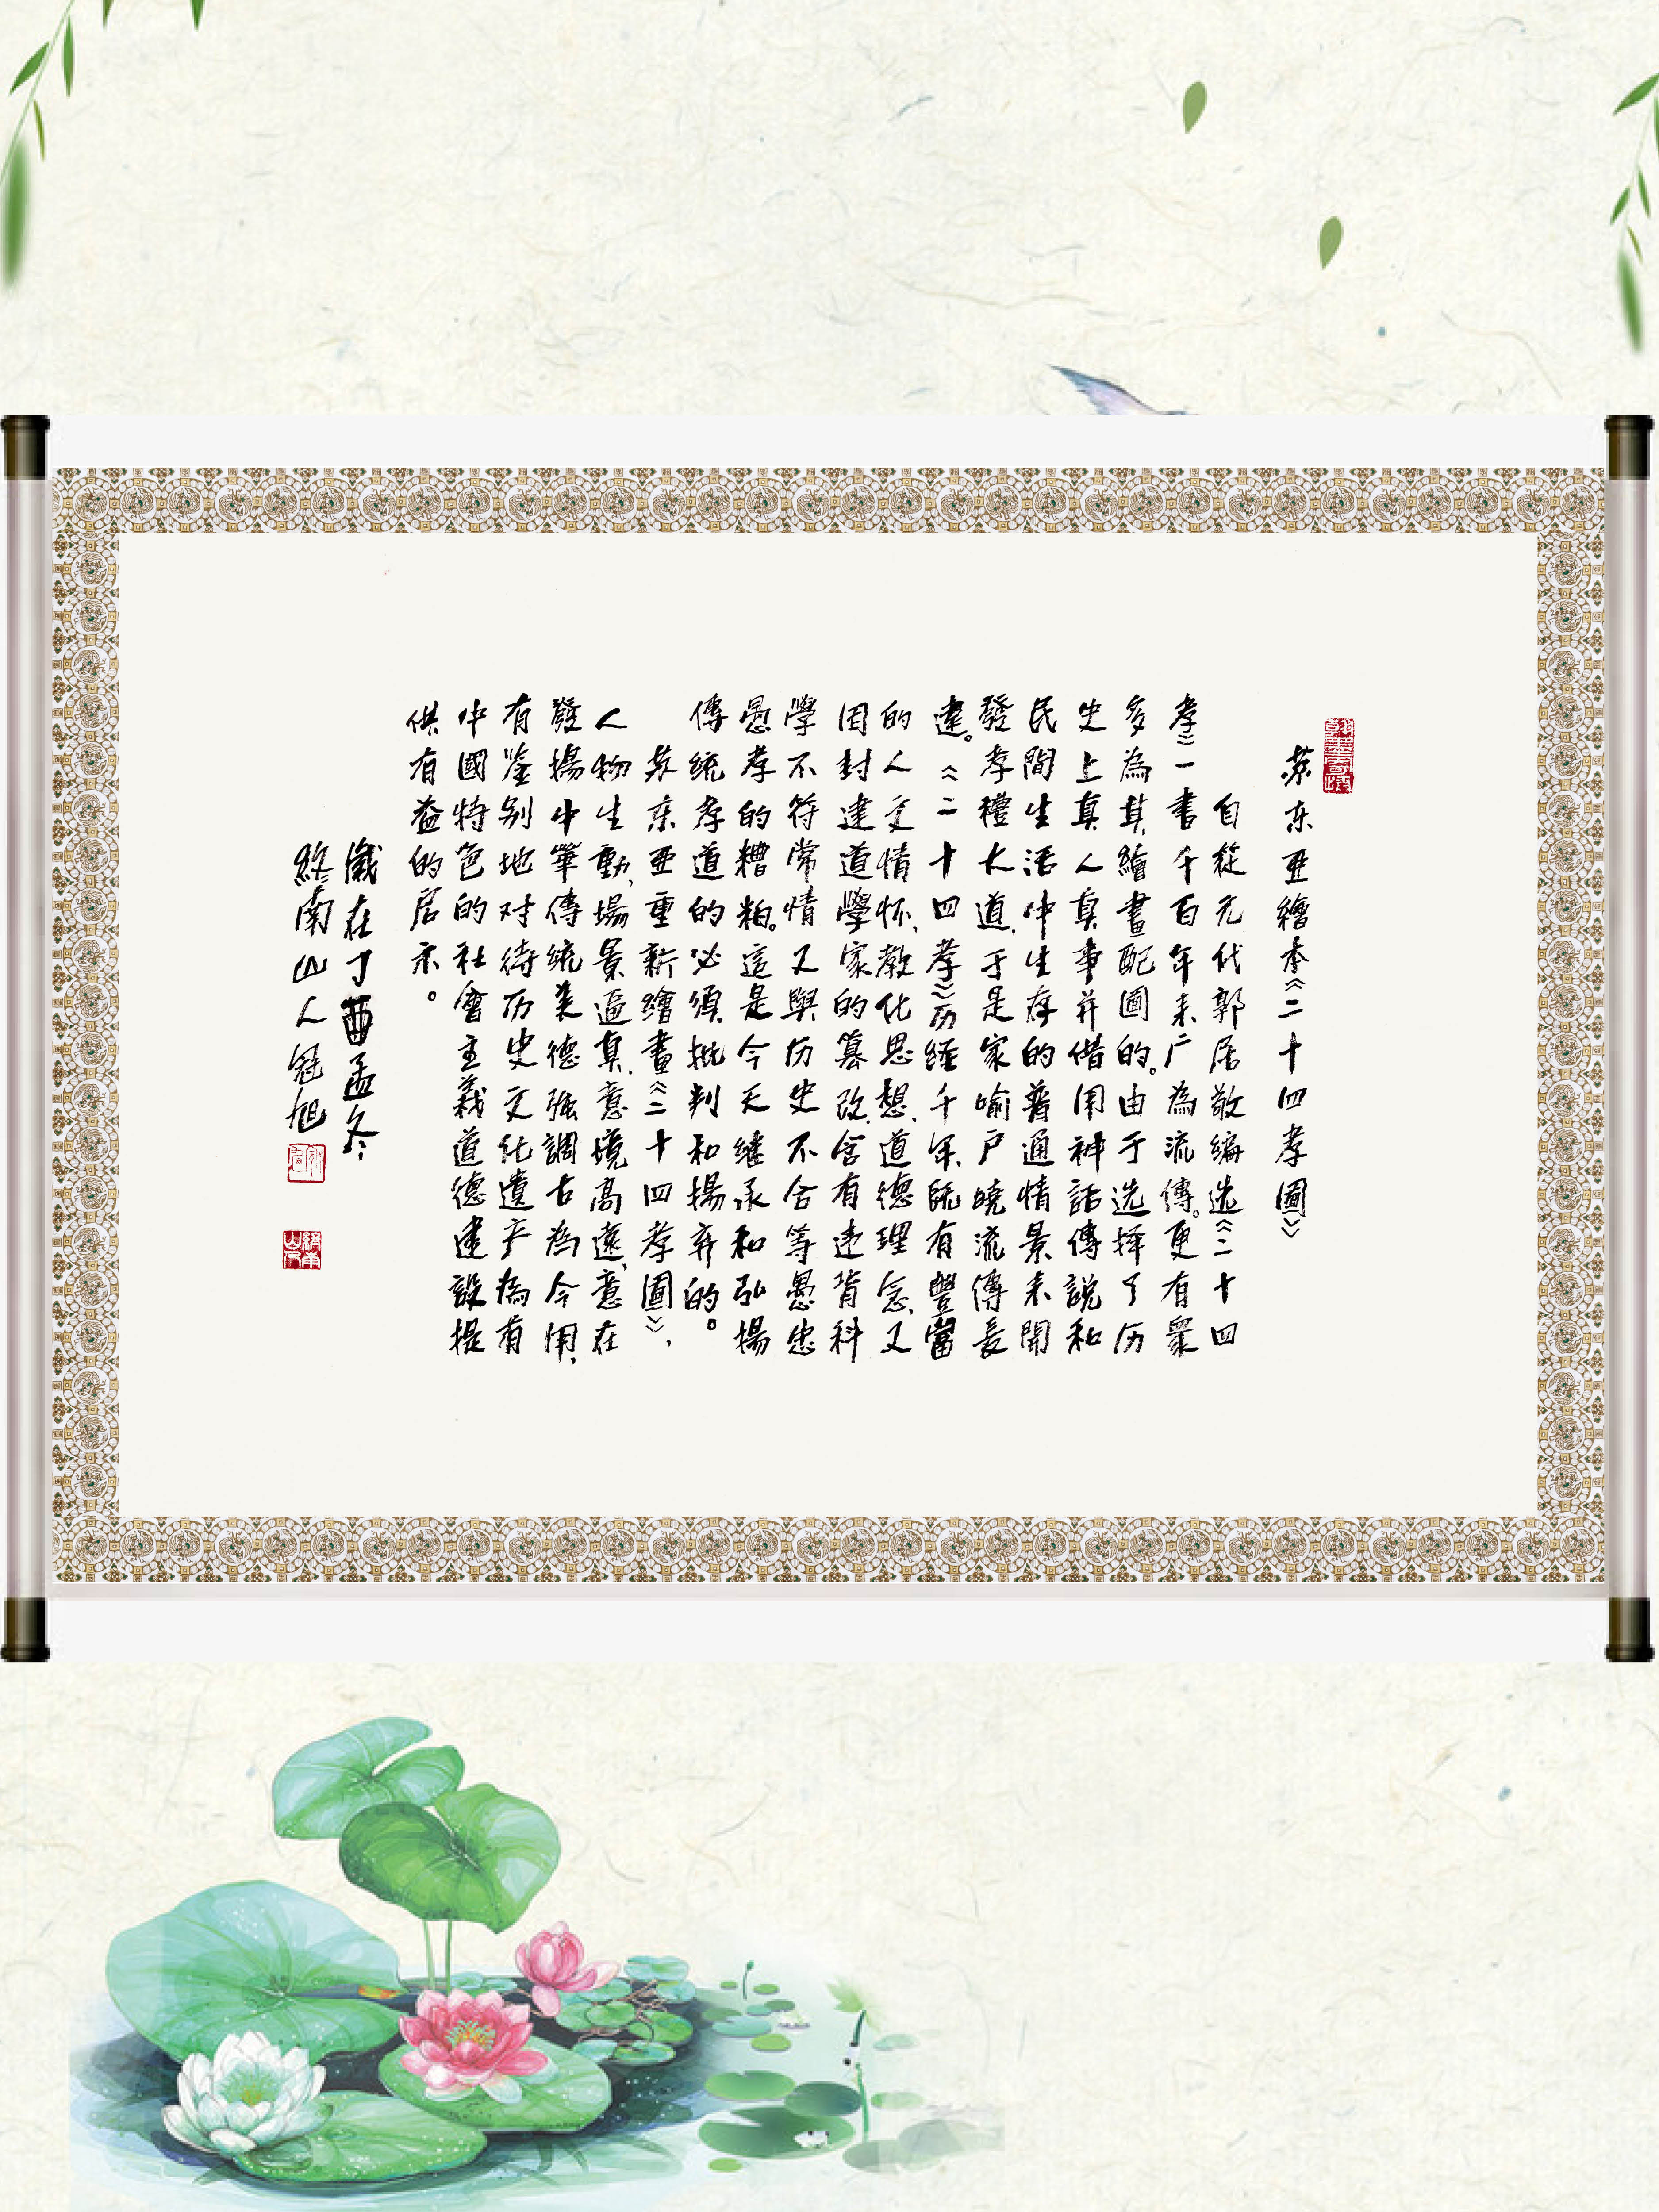 苏东亚繪本《二十四孝圖》
自從元代郭居敬編选《二十四
孝》一書千百年来广為流傳。更有衆
多為其繪畫配圖的。由于选择了历
史上真人真事并借用神話傳說和
民間生活中生存的普通情景来開
發孝禮大道,于是家喻户曉流傳長
遠。《二十四孝》历經千年,既有豐富
的人文情怀、教化思想、道德理念,又
因封建道學家的篡改,含有违背科
學不符常情又與历史不合等愚忠
愚孝的糟粕。這是今天继承和弘揚
傳统孝道的必須批判和揚弃的。
苏东亚重新繪畫《二十四孝圖》,
人物生動,場景逼真,意境高遠,意在
發揚中華傳统美德强調古為今用,
有鉴别地对待历史文化遗产為有
中國特色的社會主義道德建設提
供有益的启示。
歲在丁酉孟冬
終南山人冠旭